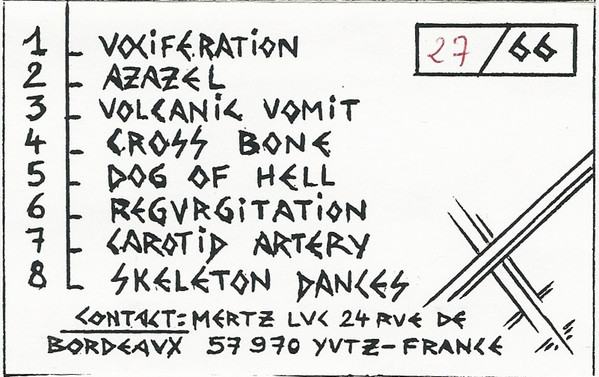 1 - VOXiFERATiON
27/66
2 - AZAZEL
3 - VOLCANiC VOMiT
4 - CROSS BONE
5 - DOG OF HELL
6 - REGVRGiTATiON
7 - CAROTiD ARTERY
8 - SKELETON DANCES
CONTACT: MERTZ LVC 24 RVE DE
BORDEAVX 57970 YVTZ-FRANCE